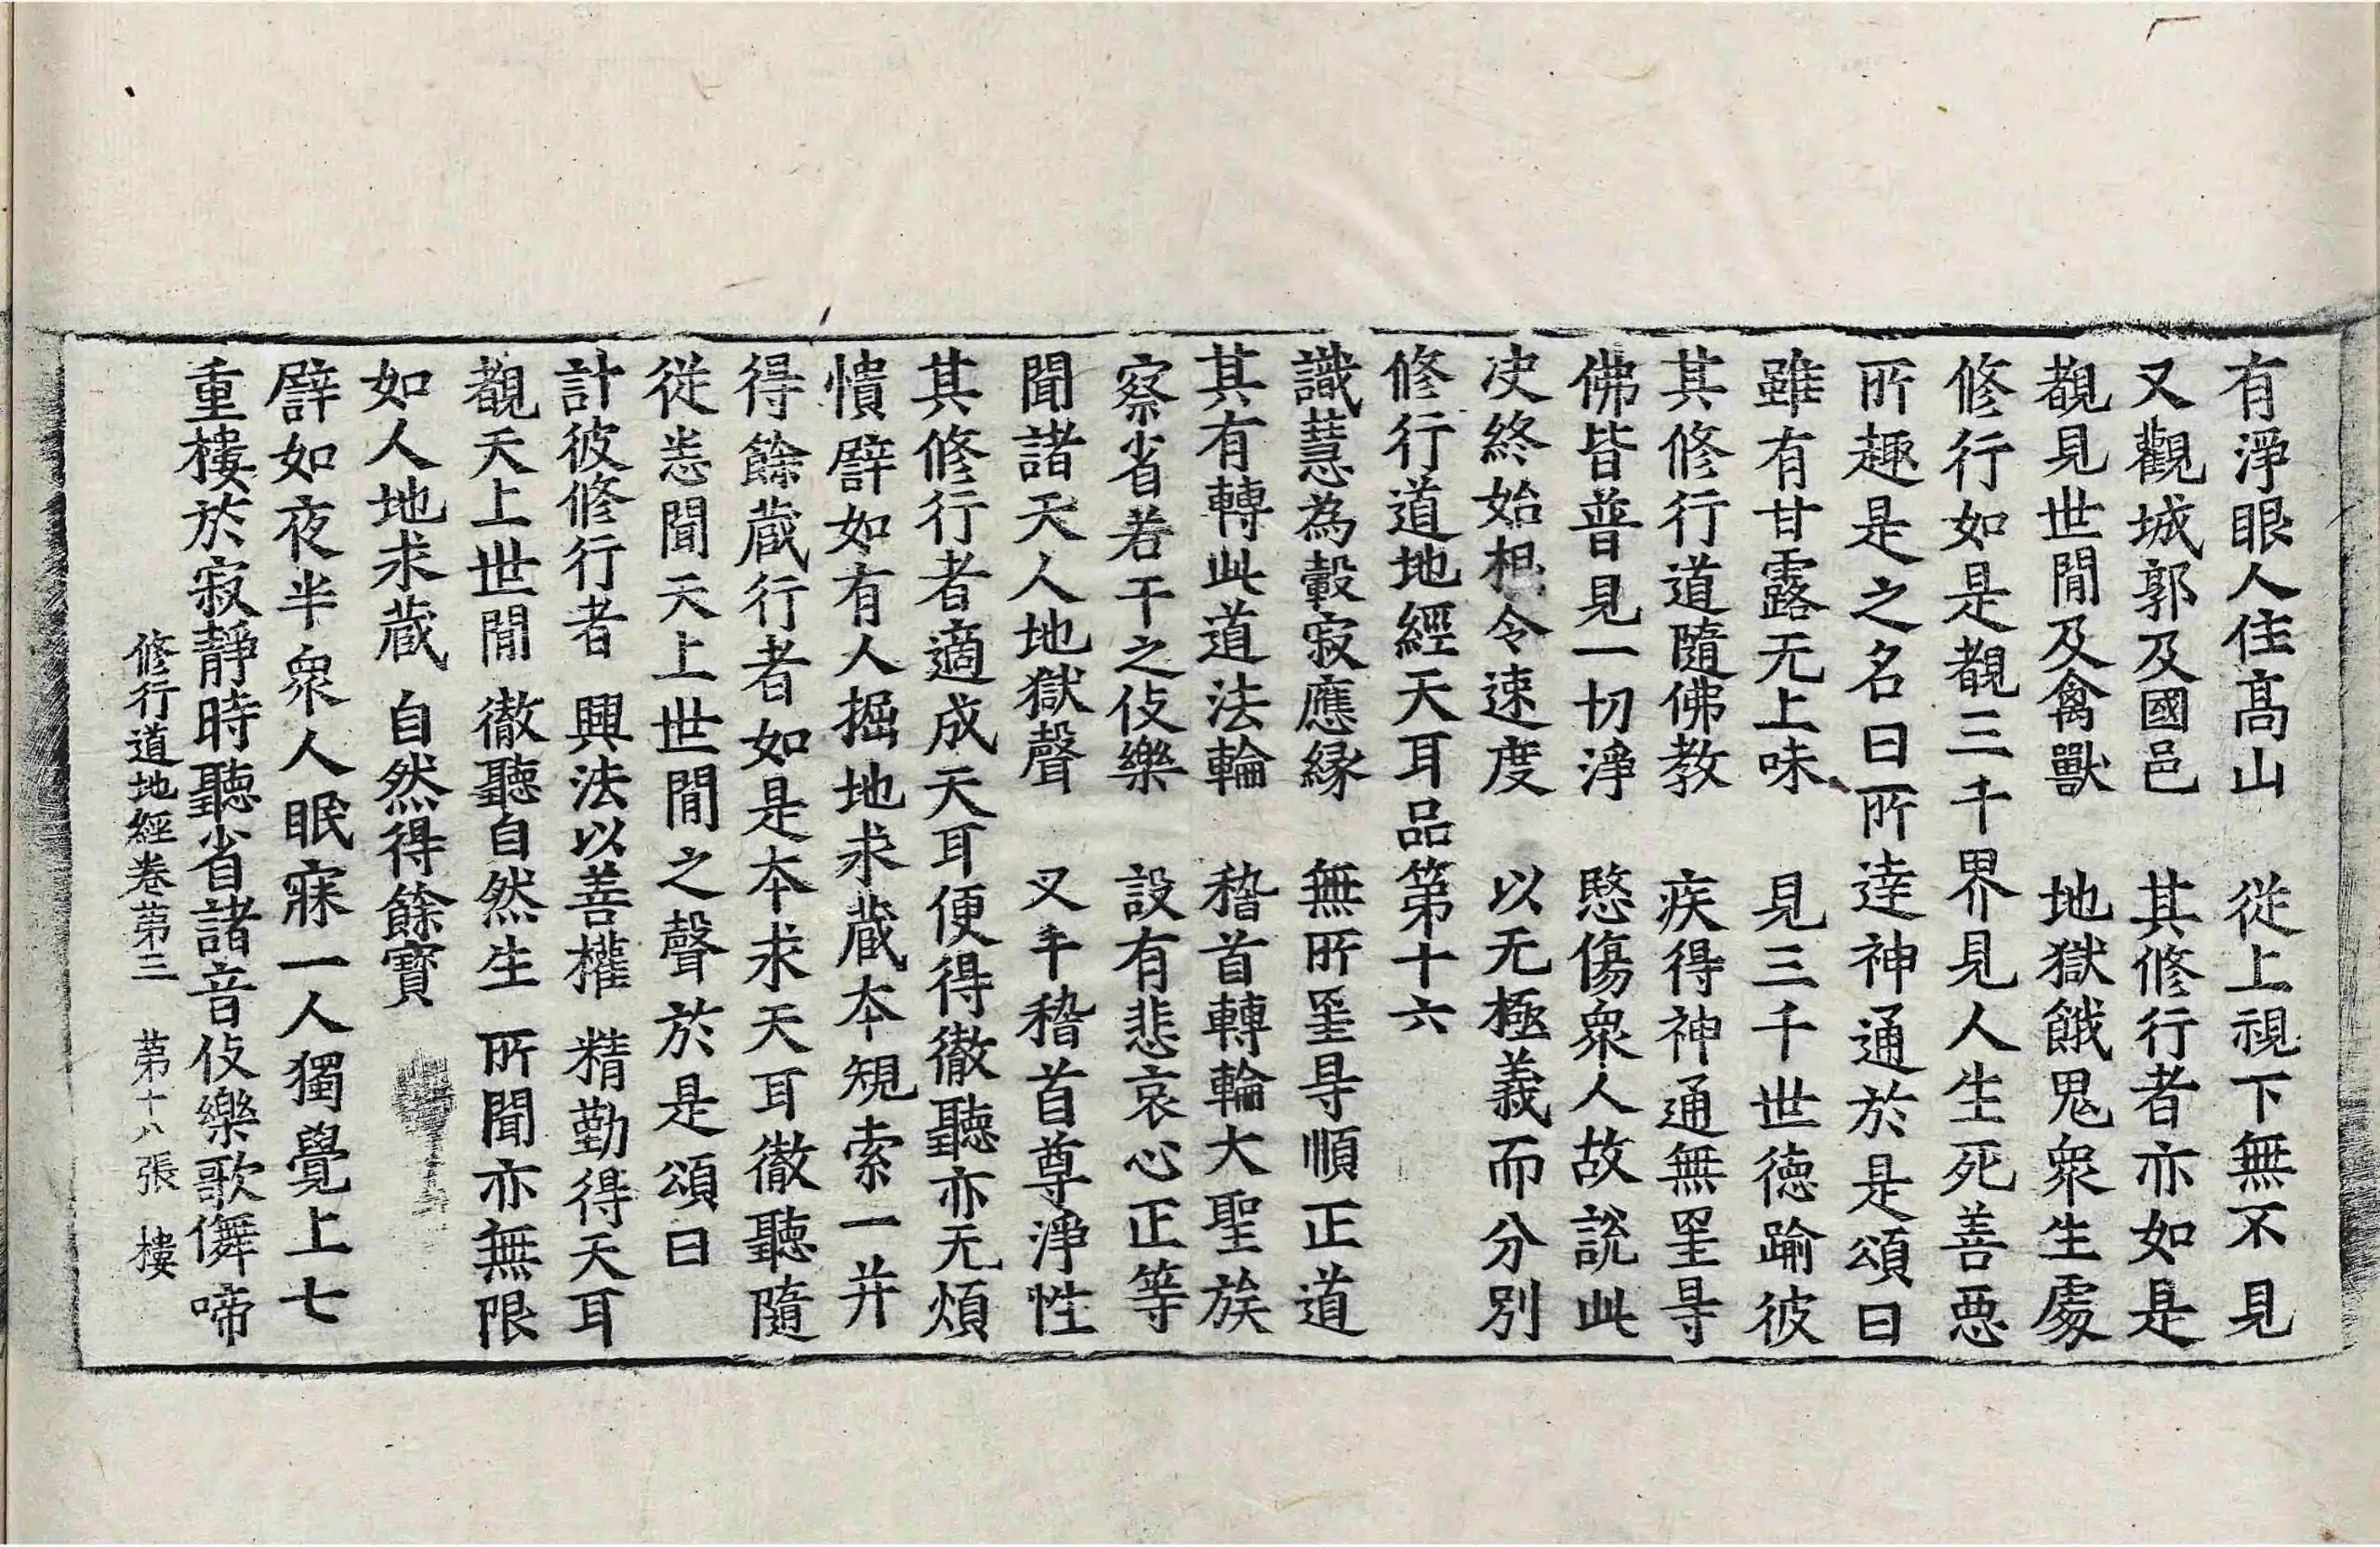 有淨眼人住高山　從上視下無不見
又觀城郭及國邑　其修行者亦如是
覩見世閒及禽獸　地獄餓鬼衆生處
修行如是覩三千界見人生死善惡
所趣是之名曰所達神通於是頌曰
雖有甘露无上味　見三千世德踰彼
其修行道隨佛教　疾得神通無罣㝵
佛皆普見一切淨　愍傷衆人故說此
决終始根令速度　以无極義而分別
修行道地經天耳品第十六
識慧為轂寂應緣　無所罣㝵順正道
其有轉此道法輪　稽首轉輪大聖族
察省若干之伎樂　設有悲哀心正等
聞諸天人地獄聲　叉手稽首尊淨性
其修行者適成天耳便得徹聽亦无煩
憒譬如有人掘地求藏本規索一并
得餘藏行者如是本求天耳徹聽隨
從恙聞天上世閒之聲於是頌曰
計彼修行者　興法以善權　精勤得天耳
覩天上世閒　徹聽自然生　所聞亦無限
如人地求藏　自然得餘寶
譬如夜半衆人眠寐一人獨覺上七
重樓於寂靜時聽省諸音伎樂歌儛啼
修行道地經卷第三　第十八張　樓